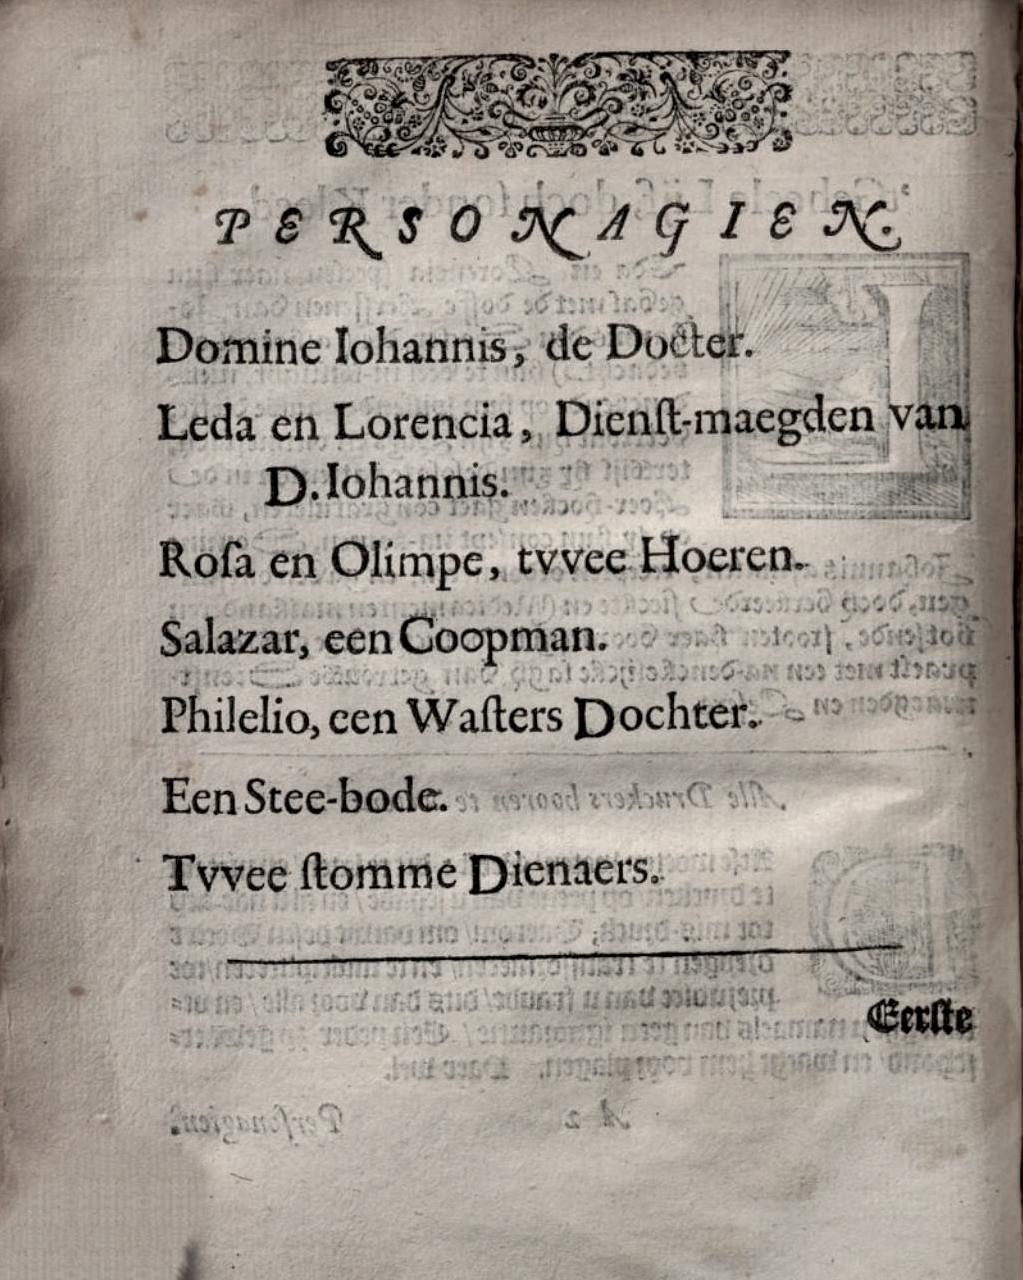 PERSONAGIEN.
Domine Iohannis, de Docter.
Leda en Lorencia, Dienſt-maegden van
D. Iohannis.
Roſa en Olimpe, tvvee Hoeren.
Salazar, een Coopman.
Philelio, een Waſters Dochter.
Een Stee-bode.
Tvvee ſtomme Dienaers.
Eerſte